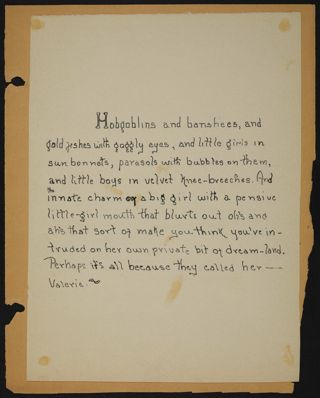 Hobgoblins and banshees, and
gold fishes with goggly eyes, and little girls in
sun bonnets, parasols with bubbles on them,
and little boys in velvet knee-breeches. And
the innate charm of a big girl with a pensive
little-girl mouth that blurts out oh's and
ah's that sort of make you think you've in-
truded on her own private bit of dream-land.
Perhaps it's all because they called her ---
Valerie. ~